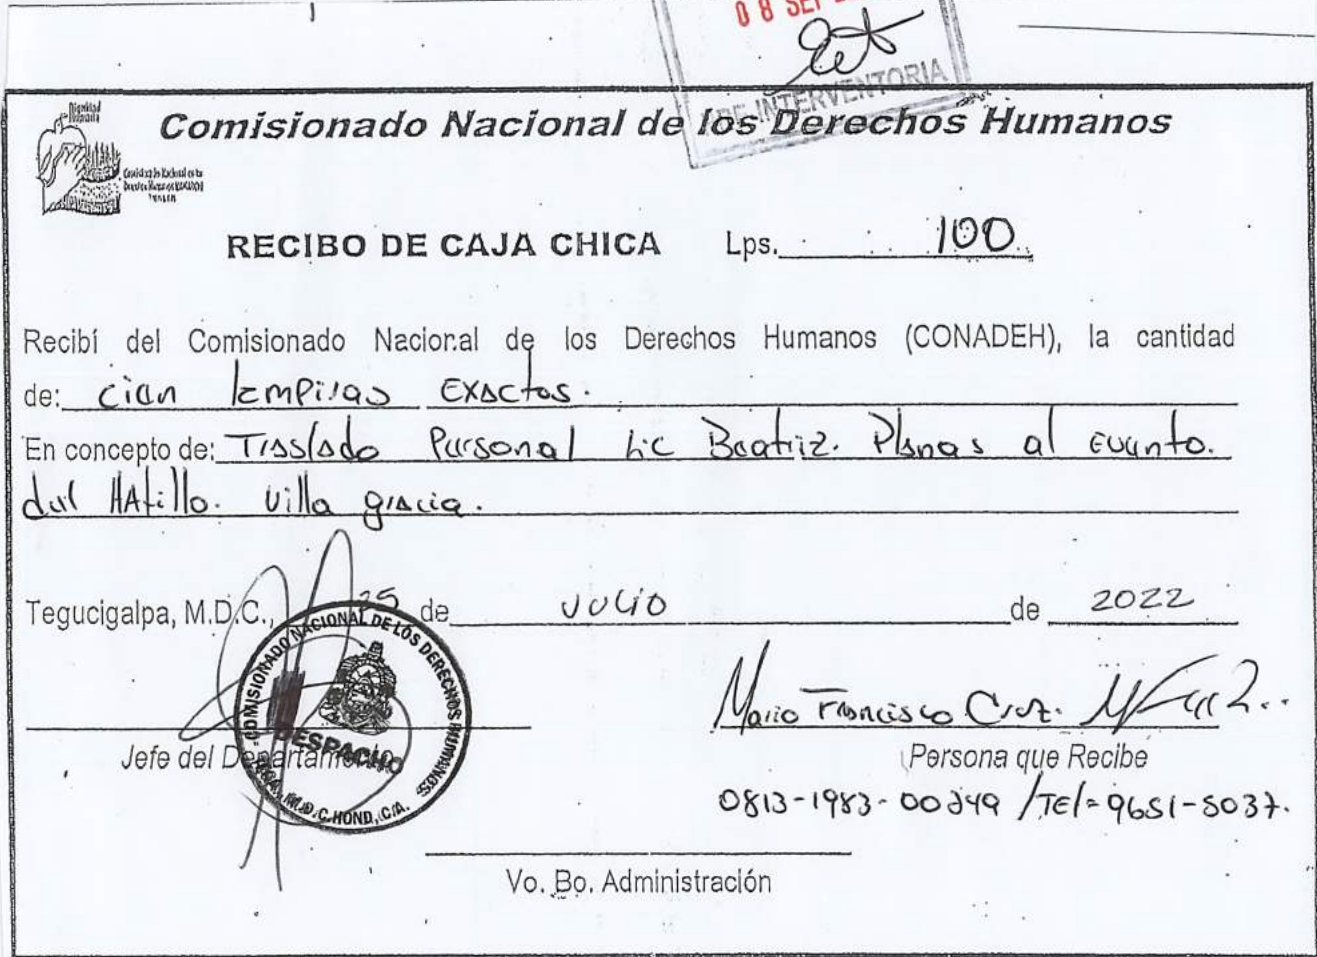 08 SEP
DE INTERVENTORIA
Dignidad Humana
Comisionado Nacional de los Derechos Humanos
RECIBO DE CAJA CHICA Lps. 100
Recibí del Comisionado Nacional de los Derechos Humanos (CONADEH), la cantidad
de: cien lempiras Exactos.
En concepto de: Traslado Personal Lic Beatriz. Planas al evento.
del HAtillo. Villa gracia.
Tegucigalpa, M.D.C., 25 de JULIO de 2022
COMISIONADO NACIONAL DE LOS DERECHOS HUMANOS
DESPACHO
M.D.C. HOND., C.A.
Mario Francisco Cruz.
Jefe del Departamento Persona que Recibe
0813-1983-00249 /Tel=9651-5037.
Vo. Bo. Administración